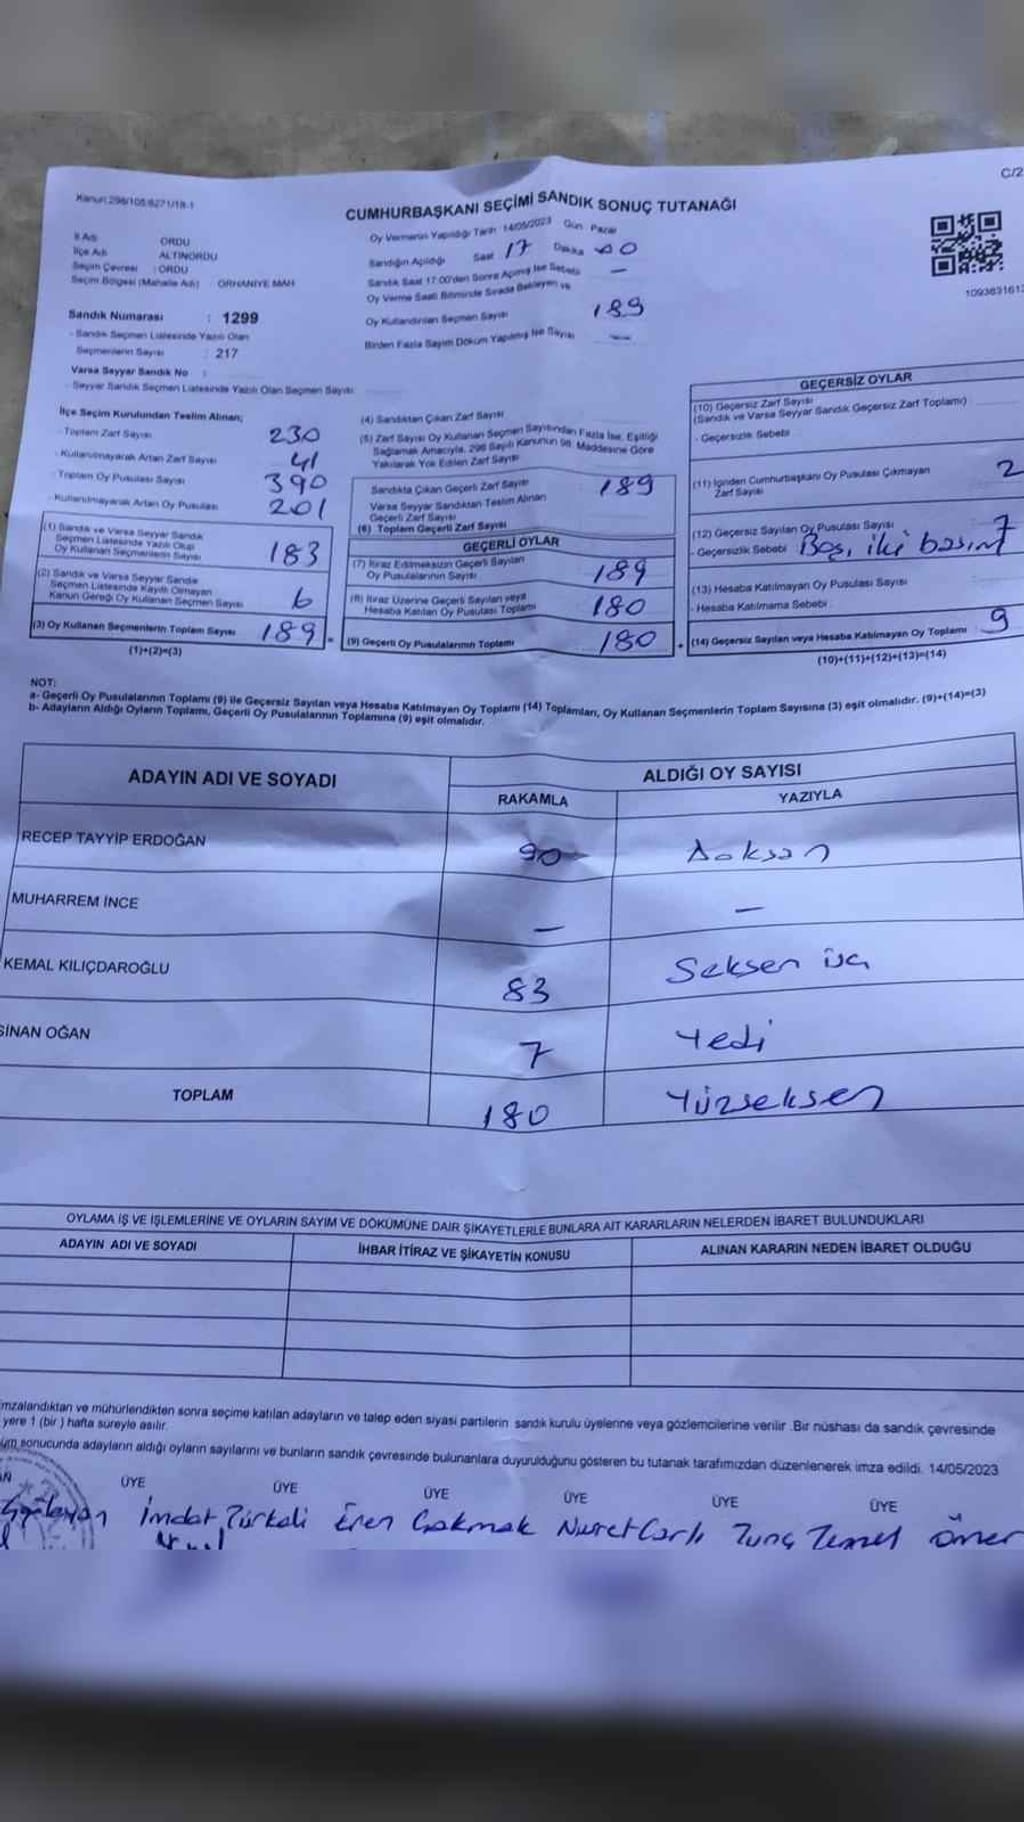 Kanun:298/105/6271/18-1
C/2
CUMHURBAŞKANI SEÇİMİ SANDIK SONUÇ TUTANAĞI
İl Adı ORDU
İlçe Adı ALTINORDU
Seçim Çevresi : ORDU
Seçim Bölgesi (Mahalle Adı) ORHANİYE MAH
Sandık Numarası : 1299
- Sandık Seçmen Listesinde Yazılı Olan
Seçmenlerin Sayısı : 217
Varsa Seyyar Sandık No :
- Seyyar Sandık Seçmen Listesinde Yazılı Olan Seçmen Sayısı:
Oy Vermenin Yapıldığı Tarih 14/05/2023 Gün Pazar
Sandığın Açıldığı Saat 17 Dakika 00
Sandık Saat 17:00'den Sonra Açılmış İse Sebebi —
Oy Verme Saati Bitiminde Sırada Bekleyen ve
Oy Kullandırılan Seçmen Sayısı 189
Birden Fazla Sayım Döküm Yapılmış İse Sayısı —
İlçe Seçim Kurulundan Teslim Alınan;
- Toplam Zarf Sayısı 230
- Kullanılmayarak Artan Zarf Sayısı 41
- Toplam Oy Pusulası Sayısı 390
- Kullanılmayarak Artan Oy Pusulası 201
(1) Sandık ve Varsa Seyyar Sandık
Seçmen Listesinde Yazılı Olup
Oy Kullanan Seçmenlerin Sayısı 183
(2) Sandık ve Varsa Seyyar Sandık
Seçmen Listesinde Kayıtlı Olmayan
Kanun Gereği Oy Kullanan Seçmen Sayısı 6
(3) Oy Kullanan Seçmenlerin Toplam Sayısı 189 =
(1)+(2)=(3)
(4) Sandıktan Çıkan Zarf Sayısı
(5) Zarf Sayısı Oy Kullanan Seçmen Sayısından Fazla İse, Eşitliği
Sağlamak Amacıyla, 298 Sayılı Kanunun 98. Maddesine Göre
Yakılarak Yok Edilen Zarf Sayısı
Sandıkta Çıkan Geçerli Zarf Sayısı 189
Varsa Seyyar Sandıktan Teslim Alınan
Geçerli Zarf Sayısı
(6) Toplam Geçerli Zarf Sayısı
GEÇERLİ OYLAR
(7) İtiraz Edilmeksizin Geçerli Sayılan
Oy Pusulalarının Sayısı 189
(8) İtiraz Üzerine Geçerli Sayılan veya
Hesaba Katılan Oy Pusulası Toplamı 180
(9) Geçerli Oy Pusulalarının Toplamı 180 +
GEÇERSİZ OYLAR
(10) Geçersiz Zarf Sayısı
(Sandık ve Varsa Seyyar Sandık Geçersiz Zarf Toplamı)
- Geçersizlik Sebebi
(11) İçinden Cumhurbaşkanı Oy Pusulası Çıkmayan
Zarf Sayısı 2
(12) Geçersiz Sayılan Oy Pusulası Sayısı 7
- Geçersizlik Sebebi Boş, iki basım
(13) Hesaba Katılmayan Oy Pusulası Sayısı
- Hesaba Katılmama Sebebi
(14) Geçersiz Sayılan veya Hesaba Katılmayan Oy Toplamı 9
(10)+(11)+(12)+(13)=(14)
NOT:
a- Geçerli Oy Pusulalarının Toplamı (9) ile Geçersiz Sayılan veya Hesaba Katılmayan Oy Toplamı (14) Toplamları, Oy Kullanan Seçmenlerin Toplam Sayısına (3) eşit olmalıdır. (9)+(14)=(3)
b- Adayların Aldığı Oyların Toplamı, Geçerli Oy Pusulalarının Toplamına (9) eşit olmalıdır.
ADAYIN ADI VE SOYADI ALDIĞI OY SAYISI
RAKAMLA YAZIYLA
RECEP TAYYİP ERDOĞAN 90 Doksan
MUHARREM İNCE — —
KEMAL KILIÇDAROĞLU 83 Seksen üç
SİNAN OĞAN 7 Yedi
TOPLAM 180 Yüzseksen
OYLAMA İŞ VE İŞLEMLERİNE VE OYLARIN SAYIM VE DÖKÜMÜNE DAİR ŞİKAYETLERLE BUNLARA AİT KARARLARIN NELERDEN İBARET BULUNDUKLARI
ADAYIN ADI VE SOYADI İHBAR İTİRAZ VE ŞİKAYETİN KONUSU ALINAN KARARIN NEDEN İBARET OLDUĞU
mzalandıktan ve mühürlendikten sonra seçime katılan adayların ve talep eden siyasi partilerin sandık kurulu üyelerine veya gözlemcilerine verilir. Bir nüshası da sandık çevresinde
yere 1 (bir ) hafta süreyle asılır.
üm sonucunda adayların aldığı oyların sayılarını ve bunların sandık çevresinde bulunanlara duyurulduğunu gösteren bu tutanak tarafımızdan düzenlenerek imza edildi. 14/05/2023
ÜYE ÜYE ÜYE ÜYE ÜYE ÜYE
İmdat Türkeli Eren Çakmak Nuret Carlı Tunç Temel Ömer